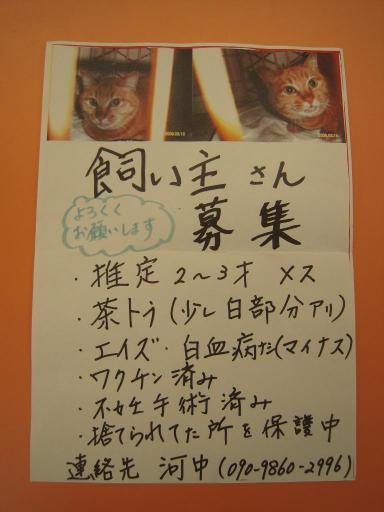 飼い主さん
募集
よろしく
お願いします
・推定 2～3才 メス
・茶トラ(少し白部分アリ)
・エイズ・白血病だ(マイナス)
・ワクチン済み
・不妊手術済み
・捨てられてた所を保護中
連絡先 河中(090-9860-2996)